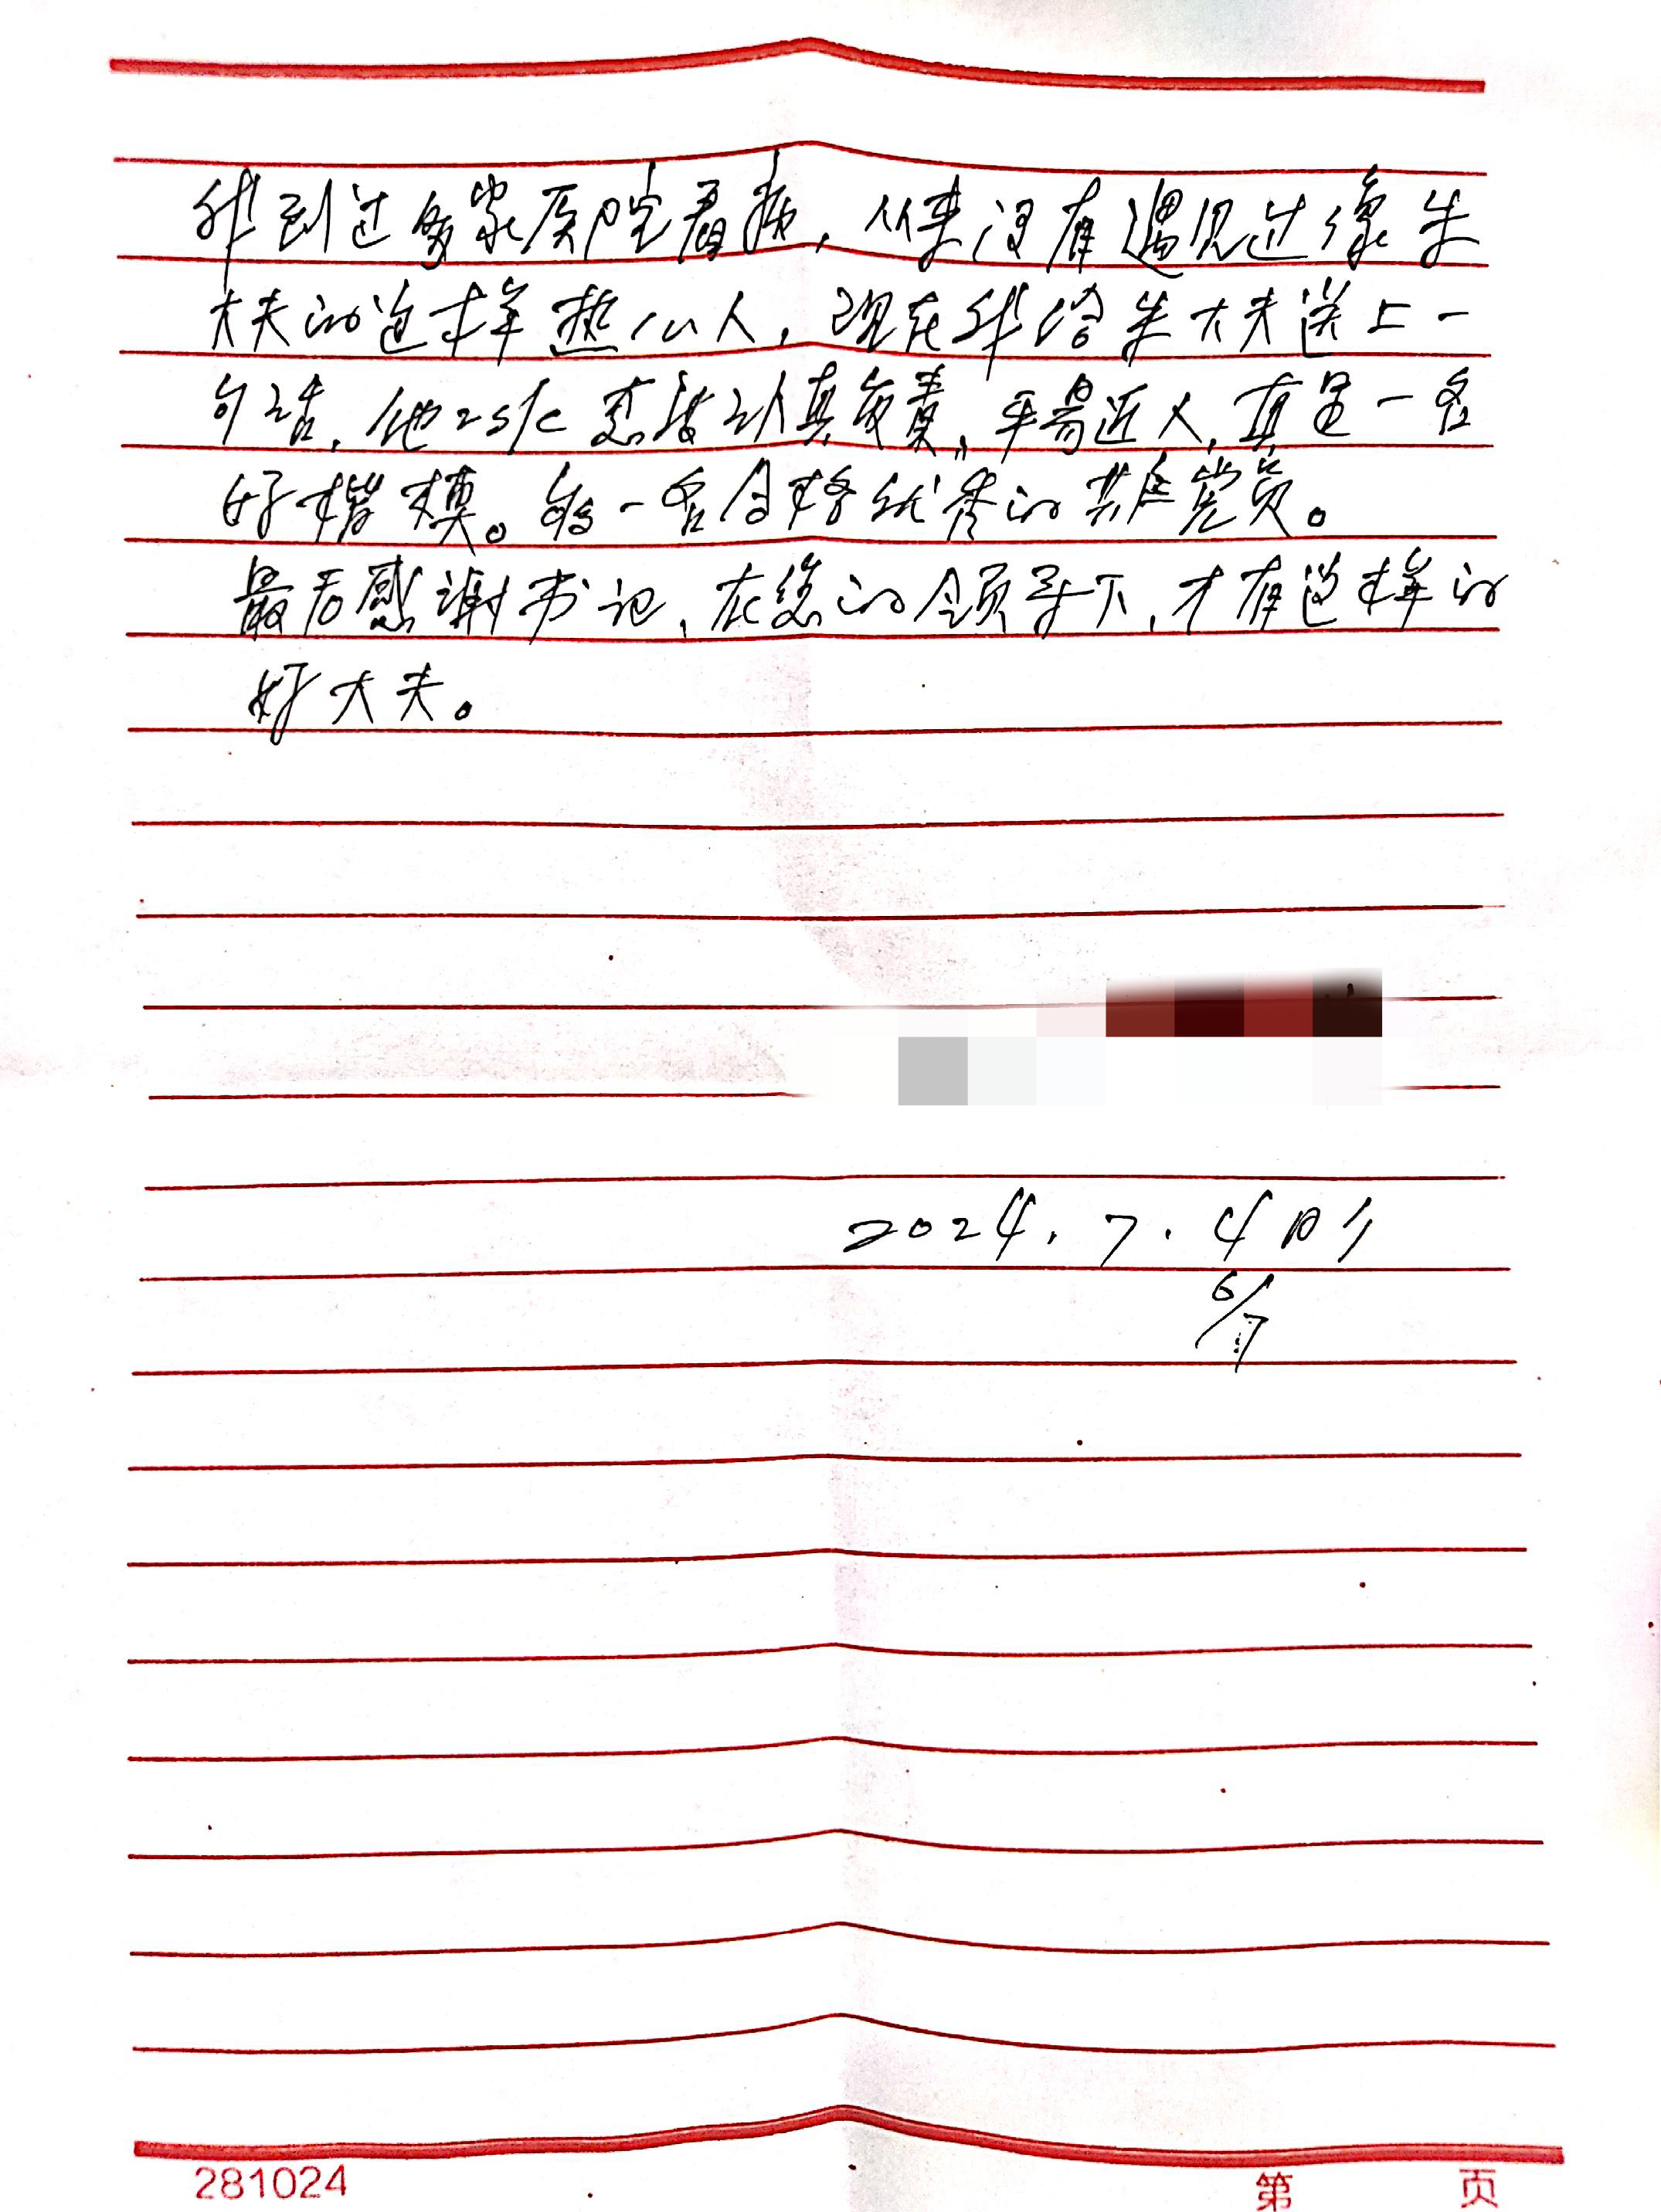 我到过多家医院看病，从来没有遇见过像朱
大夫的这样热心人，现在我给朱大夫送上一
句话，他工作态度认真负责，平易近人，真是一名
好楷模。够一名合格优秀的共产党员。
最后感谢书记，在您的领导下，才有这样的
好大夫。
2024.7.4日
6/7
281024
第 页